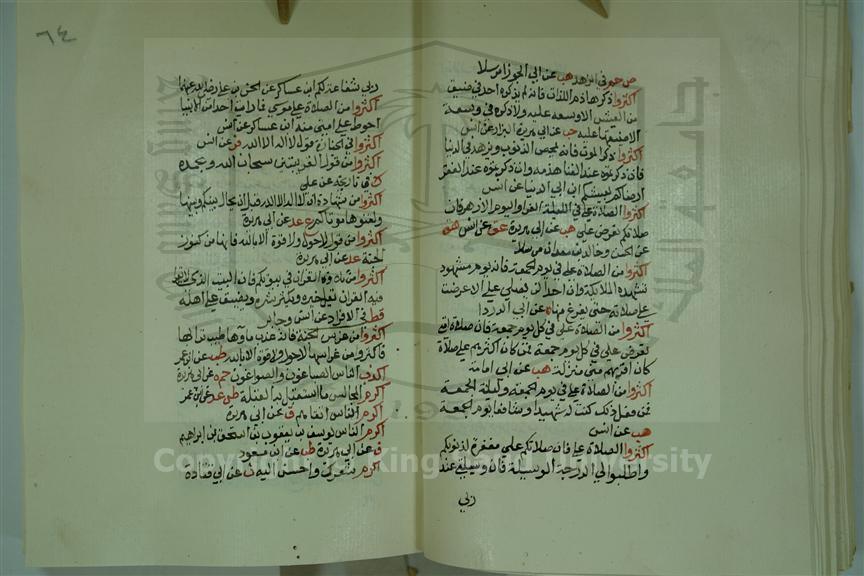 ص حم في الزهد هب عن ابي الجوزا مرسلا
أكثروا ذكر هاذم اللذات فانه لم يذكره احد في ضيق
من العيش الا وسعه عليه ولا ذكره في سعة
الا ضيقها عليه حب عن ابي هريرة البزار عن انس
أكثروا ذكر الموت فانه يمحص الذنوب ويزهد في الدنيا
فان ذكرتموه عند الغنا هدمه وان ذكرتموه عند الفقر
ارضاكم بعيشكم ابن ابي الدنيا عن انس
أكثروا الصلاة علي في الليلة الغرا واليوم الازهر فان
صلاتكم تعرض علي هب عن ابي هريرة عد عن انس ص
عن الحسن وخالد بن معدان مرسلا
أكثروا من الصلاة علي في يوم الجمعة فانه يوم مشهود
تشهده الملايكة وان احدا لن يصلي علي الا عرضت
علي صلاته حتى يفرغ منها ه عن ابي الدردا
أكثروا من الصلاة علي في كل يوم جمعة فان صلاة امتي
تعرض علي في كل يوم جمعة فمن كان اكثرهم علي صلاة
كان اقربهم مني منزلة هب عن ابي امامة
أكثروا من الصلاة علي في يوم الجمعة وليلة الجمعة
فمن فعل ذلك كنت له شهيدا وشافعا يوم الجمعة
هب عن انس
أكثروا الصلاة علي فان صلاتكم علي مغفرة لذنوبكم
واطلبوا لي الدرجة الوسيلة فان وسيلتي عند
ربي
٦٤
ربي شفاعة لكم ابن عساكر عن الحسن بن علي رضي الله عنهما
أكثروا من الصلاة علي موسي فما رايت احدا من الانبيا
احوط علي امتي منه ابن عساكر عن انس
أكثروا في الجنازة قول لا اله الا الله فر عن انس
أكثروا من قول القرينتين سبحان الله وبحمده
ك في تاريخه عن علي
أكثروا من شهادة ان لا اله الا الله قبل ان يحال بينكم وبينها
ولقنوها موتاكم ع عد عن ابي هريرة
أكثروا من قول لا حول ولا قوة الا بالله فانها من كنوز
الجنة عد عن ابي هريرة
أكثروا من تلاوة القران في بيوتكم فان البيت الذي لا يقرا
فيه القران يقل خيره ويكثر شره ويضيق علي اهله
قط في الافراد عن انس وجابر
أكثروا من غرس الجنة فانه عذب ماؤها طيب ترابها
فاكثروا من غراسها لا حول ولا قوة الا بالله طب عن ابن عمر
أكذب الناس الصباغون والصواغون حم ه عن ابي هريرة
أكرم المجالس ما استقبل به القبلة طس عد عن ابن عمر
أكرم الناس اتقاهم ق عن ابي هريرة
أكرم الناس يوسف بن يعقوب بن اسحق بن ابراهيم
ق عن ابي هريرة طب عن ابن مسعود
أكرم شعرك واحسن اليه ن عن ابي قتادة
Copyright © King Saud University